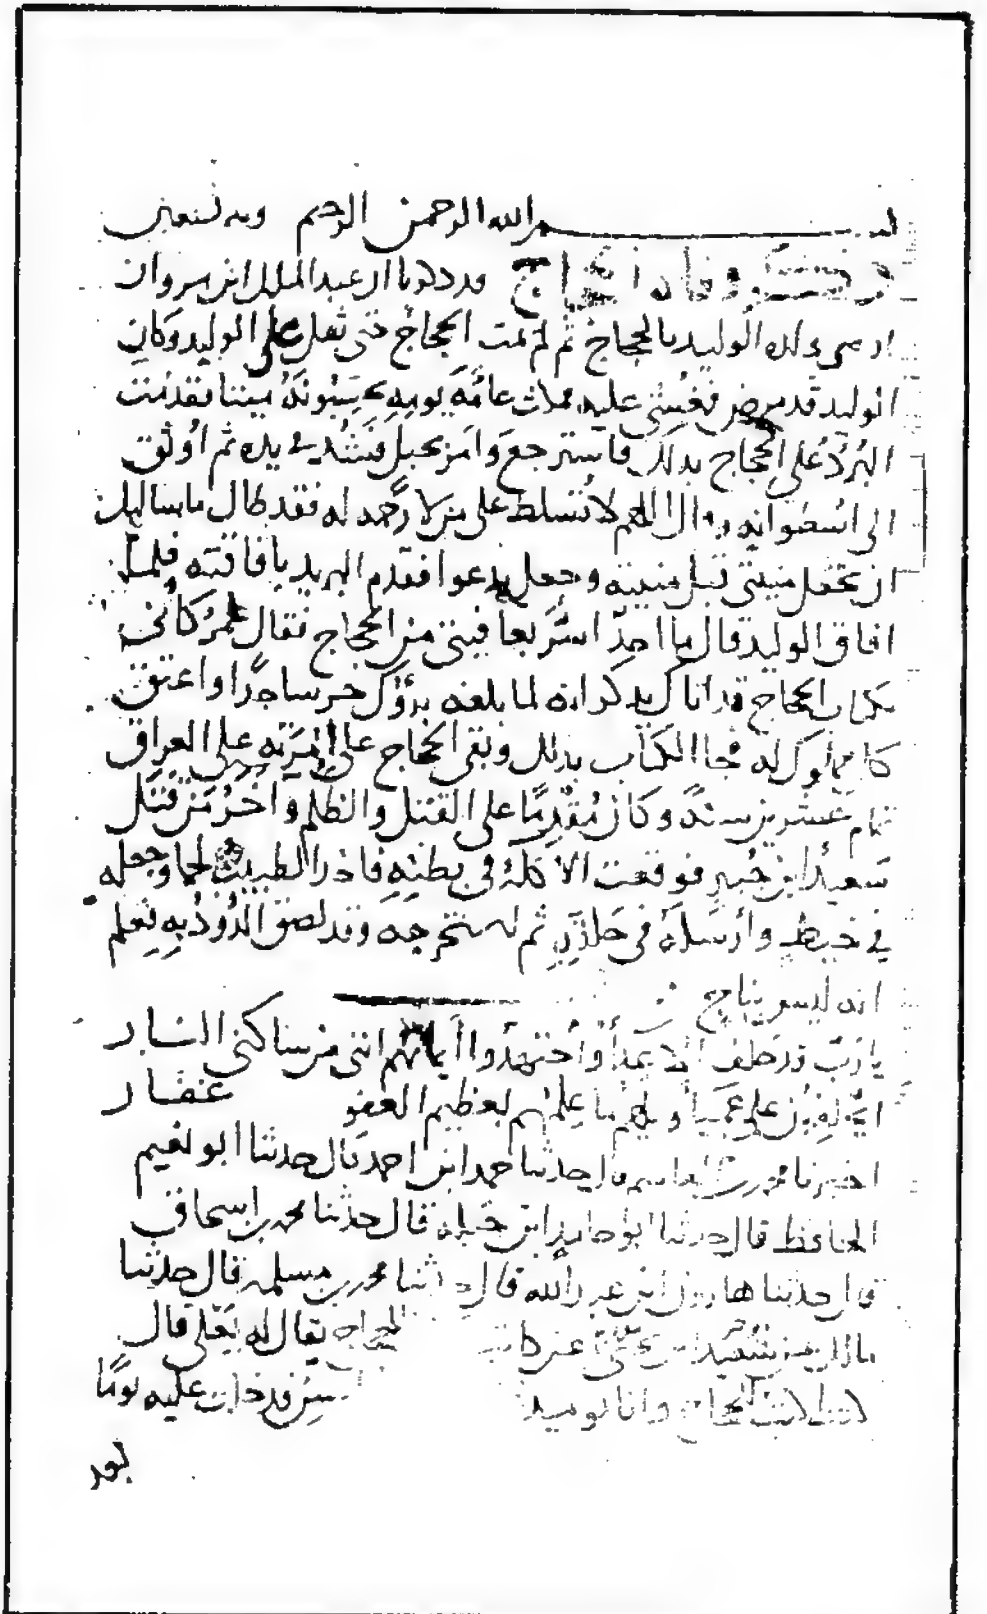 بسم الله الرحمن الرحيم وبه نستعين
ذكر وفاة الحجاج قد ذكرنا ان عبد الملك ابن مروان
اوصى ولده الوليد بالحجاج ثم لم يمت الحجاج حتى ثقل على الوليد وكان
الوليد قد مرض فغشي عليه فمكث عامة يومه يحسبونه ميتا فقدمت
البرد على الحجاج بذلك فاسترجع وامر بحبل فشد في يده ثم اوثق
الى اسطوانه وقال اللهم لا تسلط على من لا رحمه له فقد طال ما سالتك
ان تجعل منيتي قبل منيته وجعل يدعوا فقدم البريد بافاقته فلما
افاق الوليد قال ما احد اسر بعافيتي من الحجاج فقال عمر كاني
بكتاب الحجاج قد اتاك يذكر انه لما بلغه برؤك خر ساجدا واعتق
كل مملوك له فجا الكتاب بذلك وبقي الحجاج على امرته على العراق
تمام عشرين سنة وكان مقدما على القتل والظلم واخر من قتل
سعيد ابن جبير فوقعت الاكلة في بطنه فاخذ الطبيب لحما وجعله
في خيط وارسله في حلقه ثم استخرجه وقد لصق الدود به فعلم
انه ليس بناج
يا رب قد حلف الاعدا واجتهدوا ايمانهم انني من ساكني النار
ايحلفون على عميا ويلهم ما علمهم بعظيم العفو غفار
اخبرنا محمد بن القاسم قال حدثنا حمد ابن احمد قال حدثنا ابو نعيم
الحافظ قال حدثنا ابو حامد ابن جبلة قال حدثنا محمد بن اسحاق
قال حدثنا هارون ابن عبد الله قال حدثنا محمد بن مسلمة قال حدثنا
مالك بن سعيد عن كاتب الحجاج يقال له يعلى قال
كنت اكتب للحجاج وانا يوميذ فدخلت عليه يوما
بعد